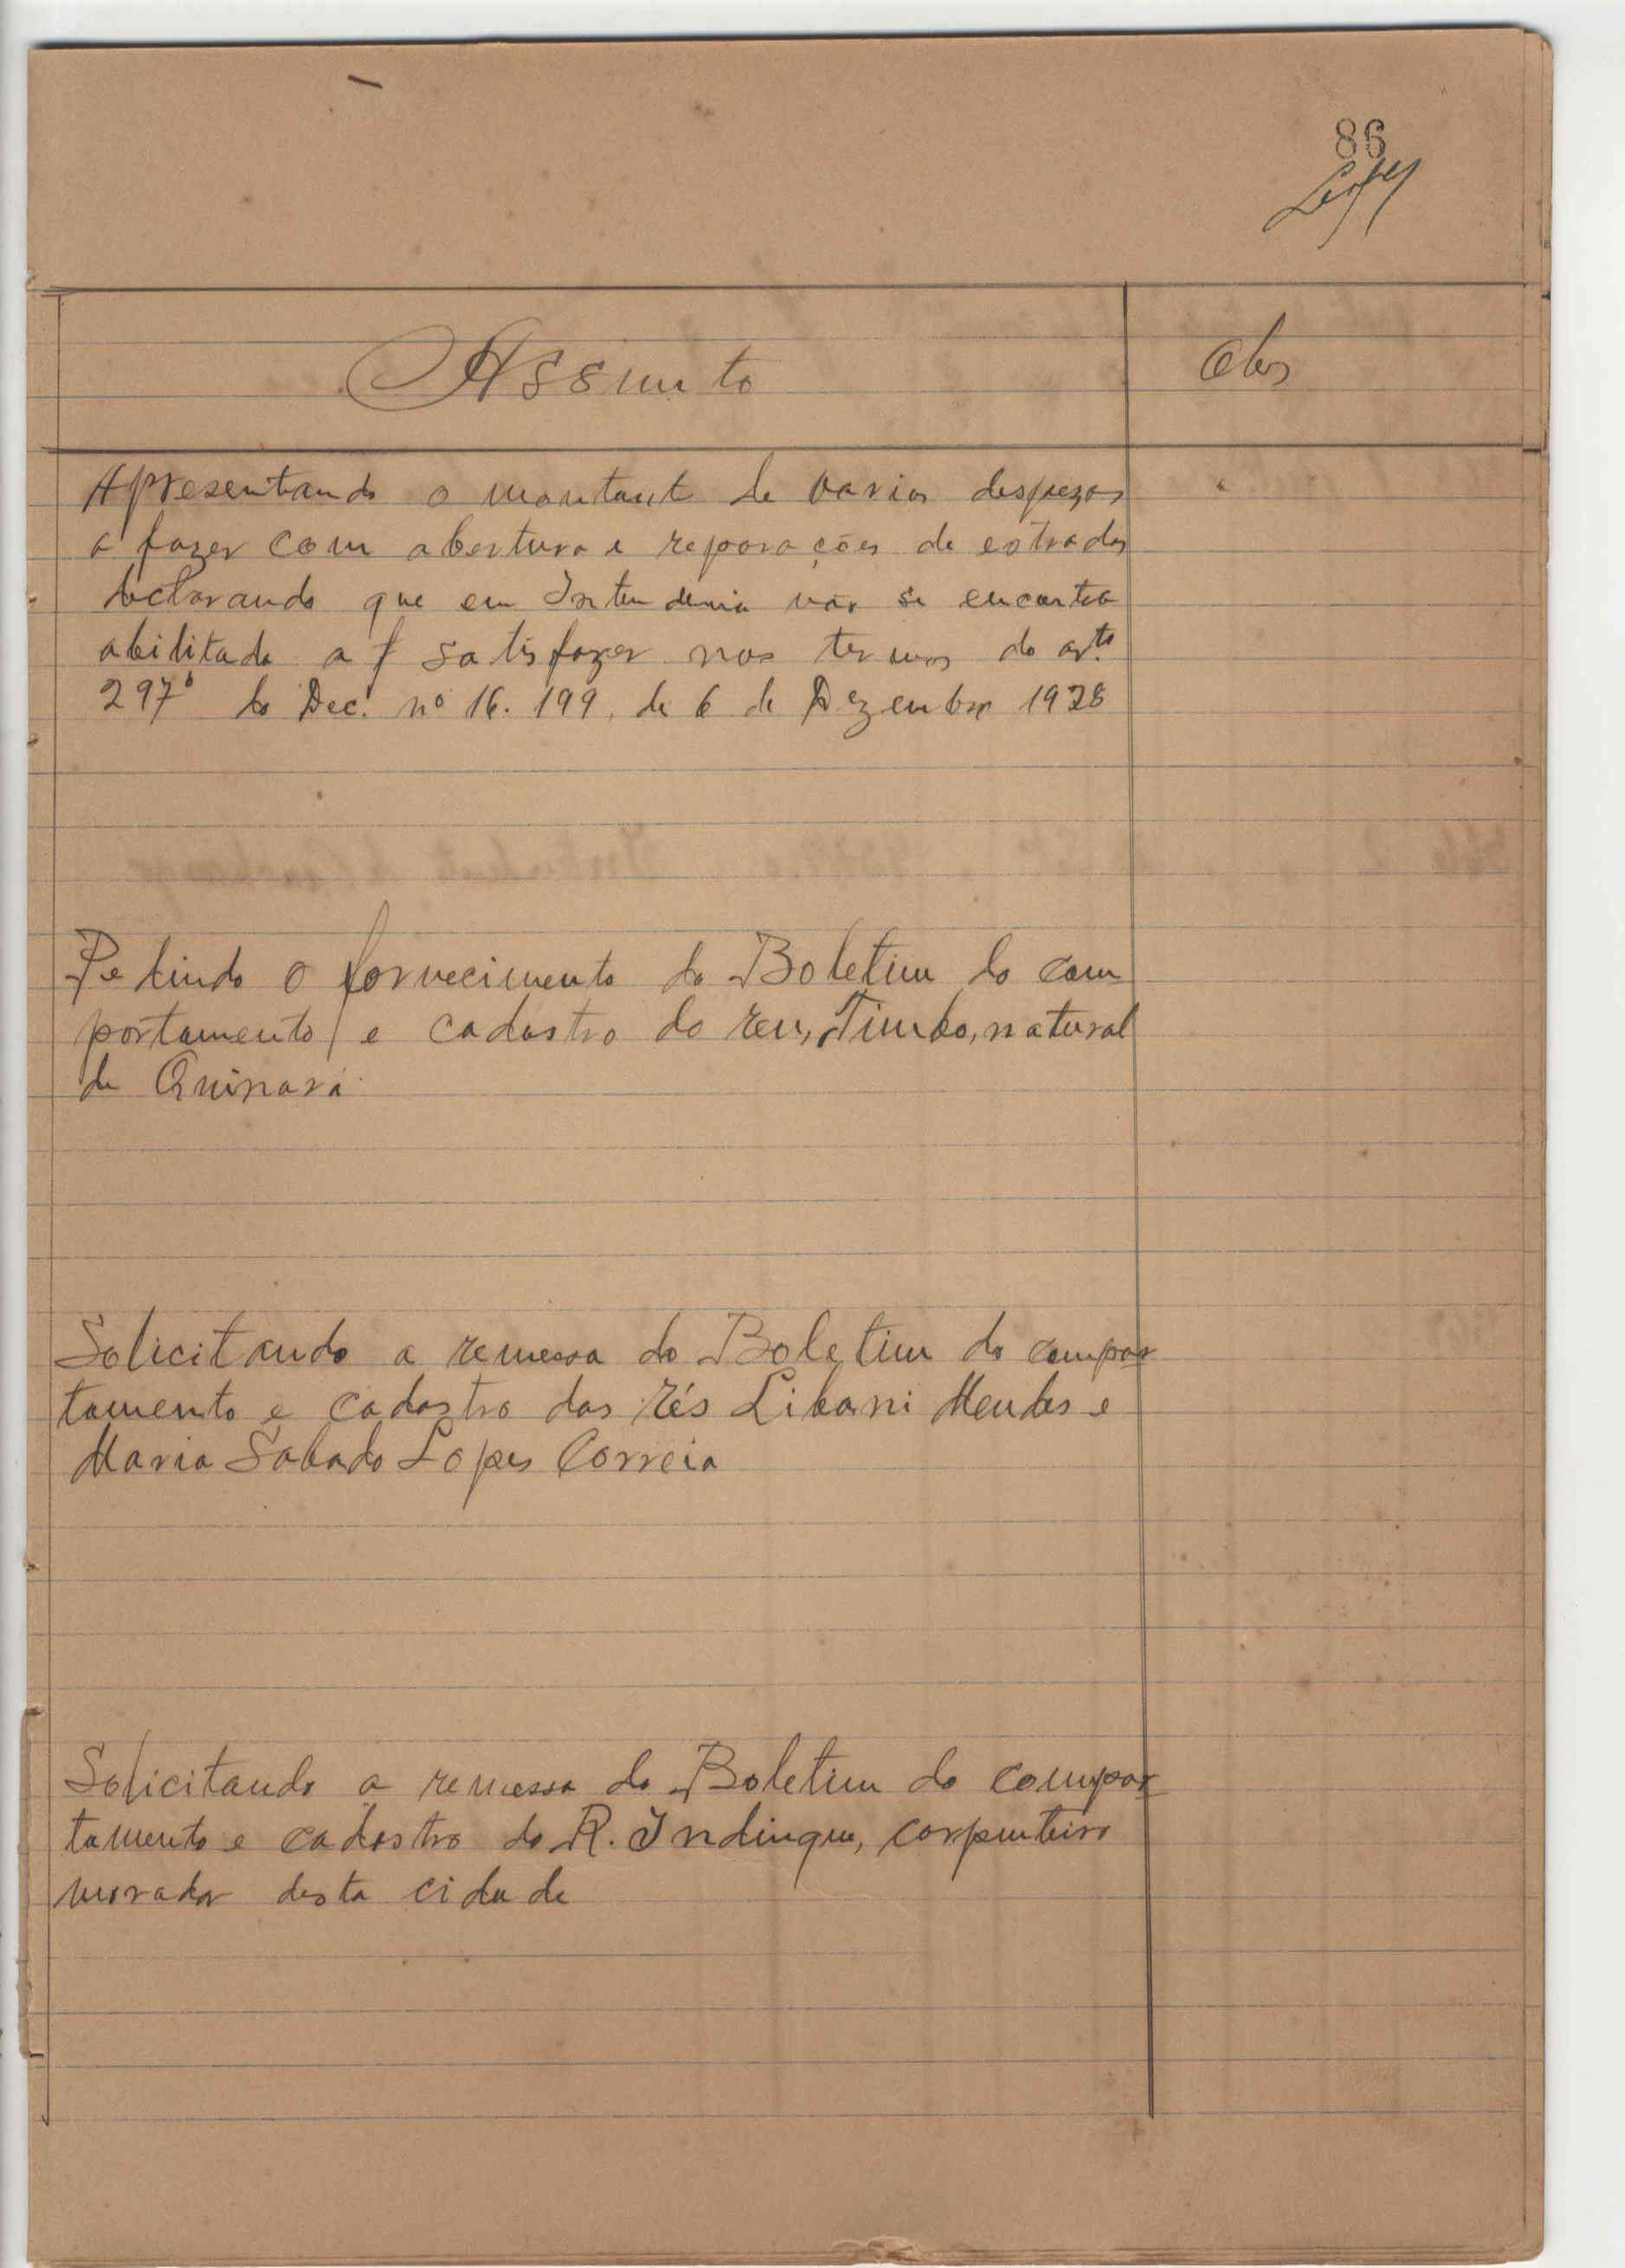 86
Assunto
Obs
Apresentando o montant de varias despezas
a fazer com abertura e reparações de estradas
declarando que em Intendencia não se encontra
abilitada a satisfazer nos termos do art.to
297º do Dec. nº 16.199, de 6 de Dezembro 1928
Pedindo o fornecimento do Boletim do com
portamento e cadastro do reu, Timbo, natural
de Quinara
Solicitando a remessa do Boletim do compor
tamento e cadastro das rés Libani Mendes e
Maria Sabado Lopes Correia
Solicitando a remessa do Boletim do compor
tamento e cadastro do R. Indinque, carpinteiro
morador desta cidade